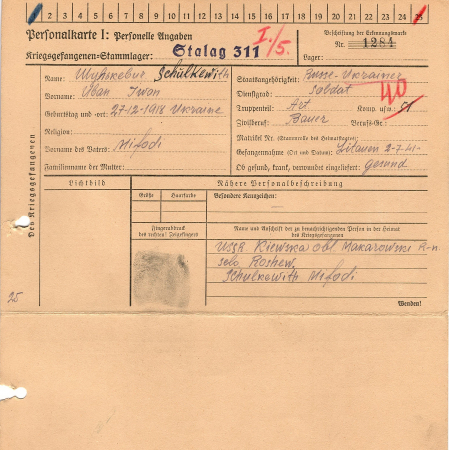 1 2 3 4 5 6 7 8 9 10 11 12 13 14 15 16 17 18 19 20 21 22 23 24 25
Personalkarte I: Personelle Angaben
Kriegsgefangenen-Stammlager: Stalag 311 I./5.
Beschriftung der Erkennungsmarke
Nr. 1284
Lager:
Des Kriegsgefangenen
Name: Шулькевич Schulkewith
Vorname: Иван Iwan
Geburtstag und -ort: 27-12-1918 Ukraine
Religion:
Vorname des Vaters: Mifodi
Familienname der Mutter:
Staatsangehörigkeit: Russe-Ukrainer
Dienstgrad: Soldat
40
Truppenteil: Art Komp. usw.:
Zivilberuf: Bauer Berufs-Gr.:
Matrikel Nr. (Stammrolle des Heimatstaates):
Gefangennahme (Ort und Datum): Litauen 2-7-41-
Ob gesund, krank, verwundet eingeliefert: gesund
Lichtbild
Nähere Personalbeschreibung
Größe
Haarfarbe
Besondere Kennzeichen:
Fingerabdruck
des rechten! Zeigefingers
Name und Anschrift der zu benachrichtigenden Person in der Heimat
des Kriegsgefangenen
USSR Kiewska obl Makarowski R-n
selo Roshew
Schulkewith Mifodi
25
Wenden!